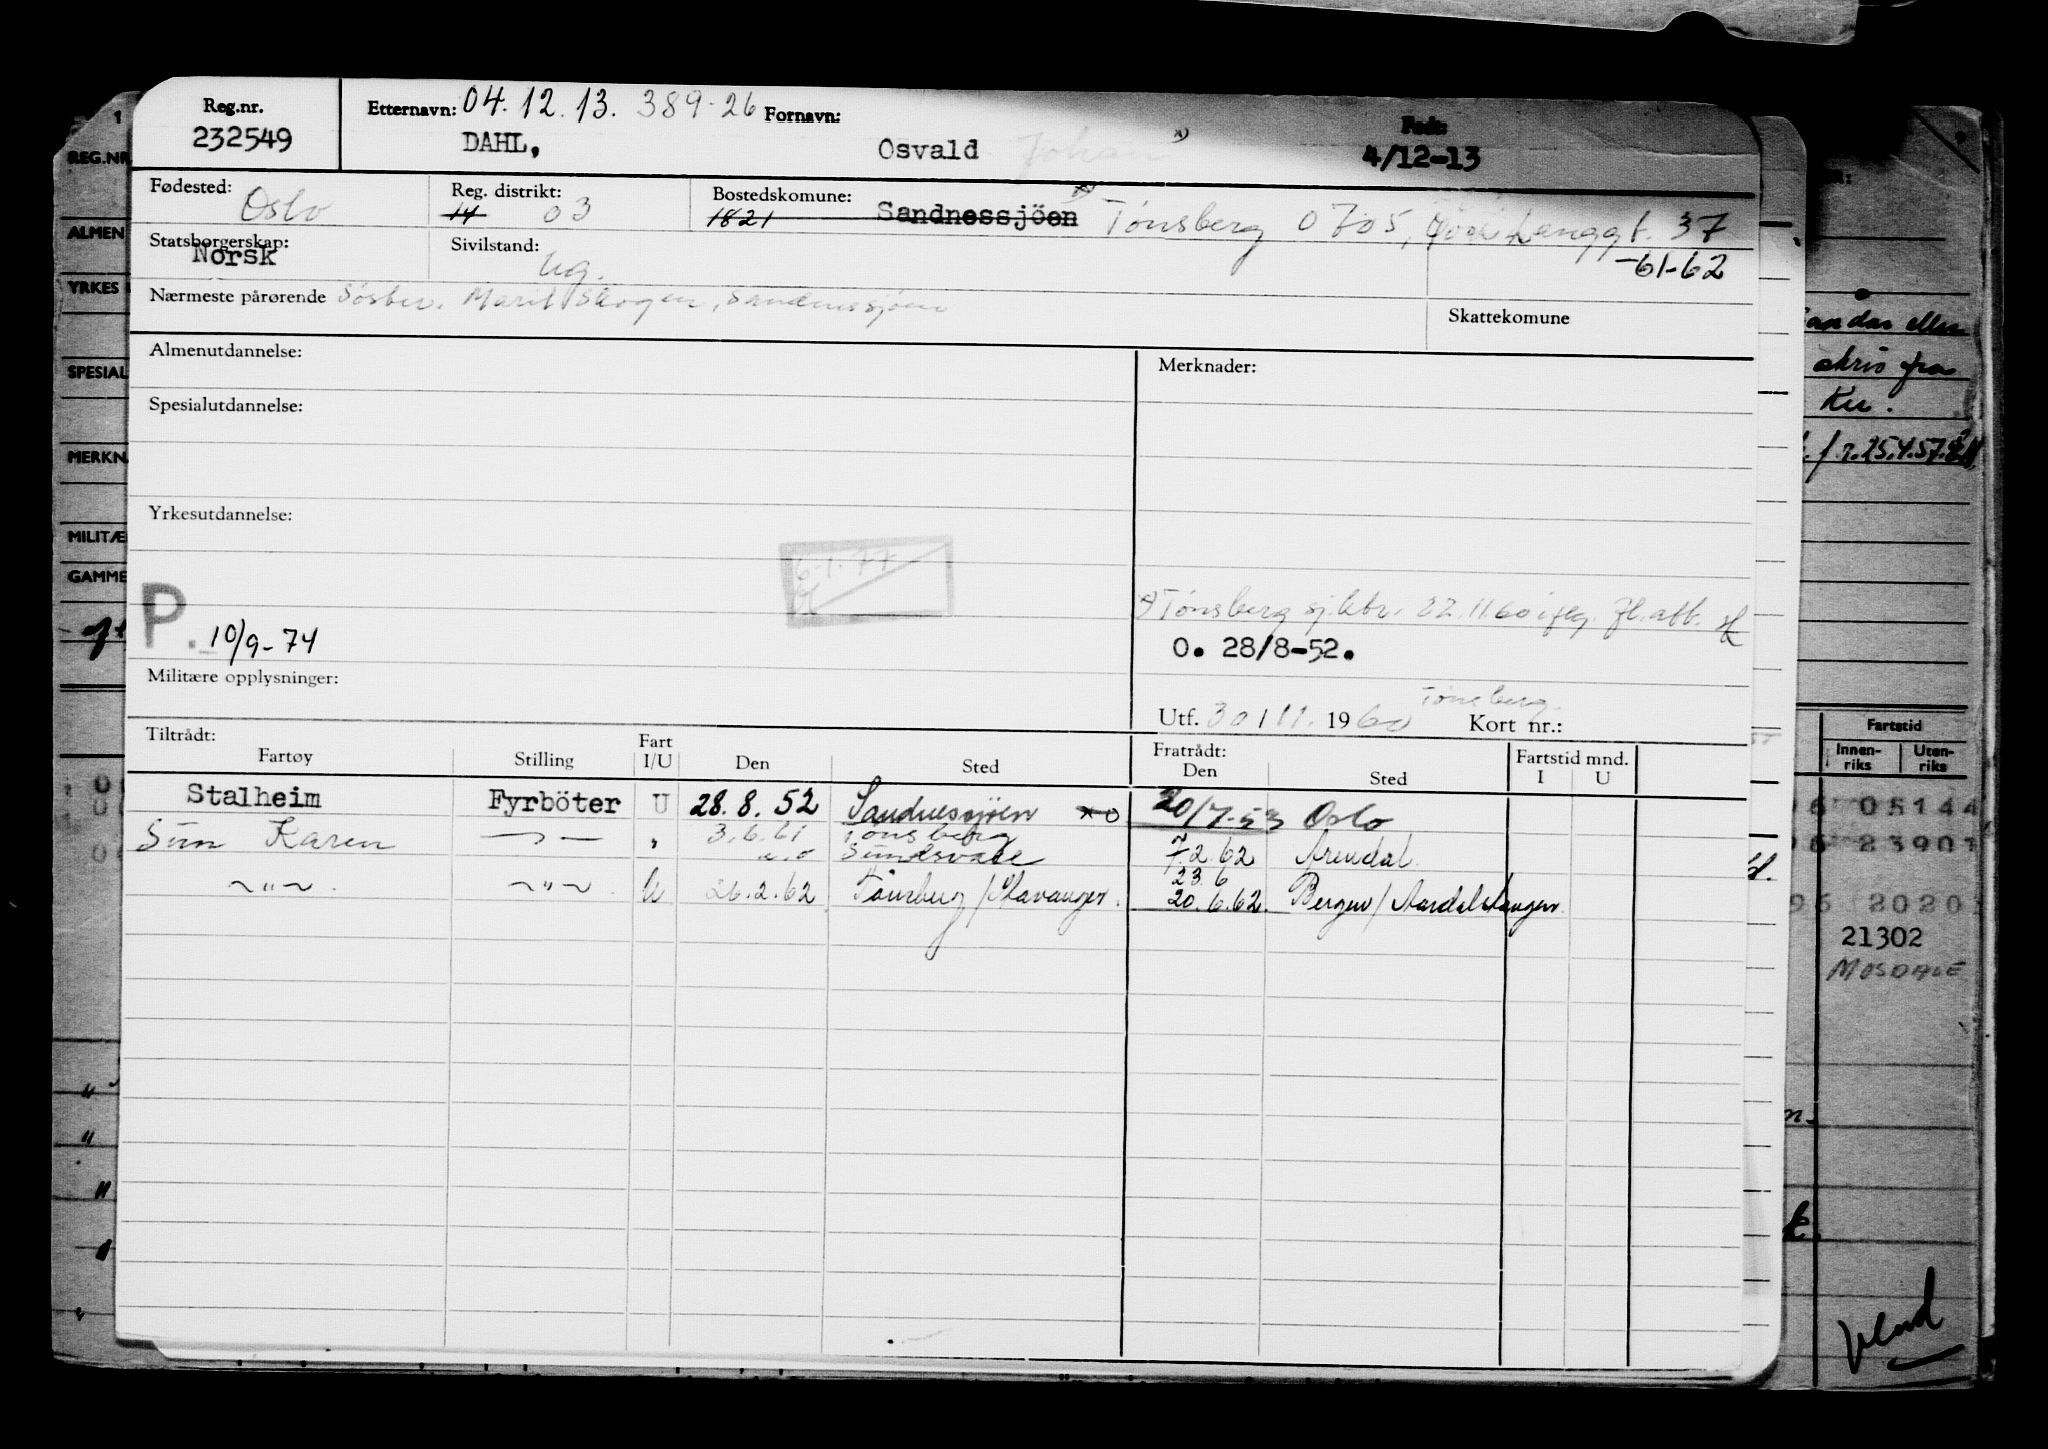 Reg.nr.
232549
Etternavn: 04.12.13. 389-26 Fornavn:
DAHL, Osvald Johan x)
Født:
4/12-13
Fødested: Oslo
Reg. distrikt: 14 03
Bostedskomune: 1821 Sandnessjöen Tönsberg 0705, Langgt. 37
-61-62
Statsborgerskap: Norsk
Sivilstand: Ug.
Nærmeste pårørende Söster. Marit Skogen, Sandnessjöen
Skattekomune
Almenutdannelse:
Merknader:
Spesialutdannelse:
Yrkesutdannelse:
6.1.77
P. 10/9-74
x) Tönsberg sj.ktr. 22.11.60 ifølg. fl.att.
O. 28/8-52.
Militære opplysninger:
Utf. 30/11. 1960 Tönsberg. Kort nr.:
Tiltrådt:
Fartøy Stilling Fart I/U Den Sted
Fratrådt:
Den Sted
Fartstid mnd.
I U
Stalheim Fyrböter U 28.8.52 Sandnessjöen xo 20/7-53 Oslo
Sun Karen — " — " 3.6.61 Tönsberg
a.o Sundsvall 7.2.62 Arendal.
23.6
~"~ . ~"~ U 26.2.62 Tönsberg/Stavanger. 20.6.62. Bergen/Aardalstangen.
REG.NR
ALMEN
YRKES
SPESIAL
MERKN
MILITÆ
GAMME
skriv fra
Fartstid
Innen-
riks
Uten-
riks
05144
23901
2020
21302
MOSDALE